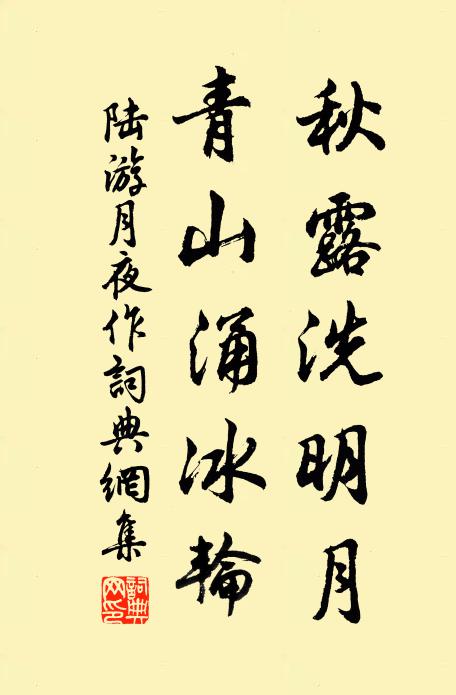 秋露洗明月
青山涌冰輪
陆游月夜作詞典網集
詞典網印